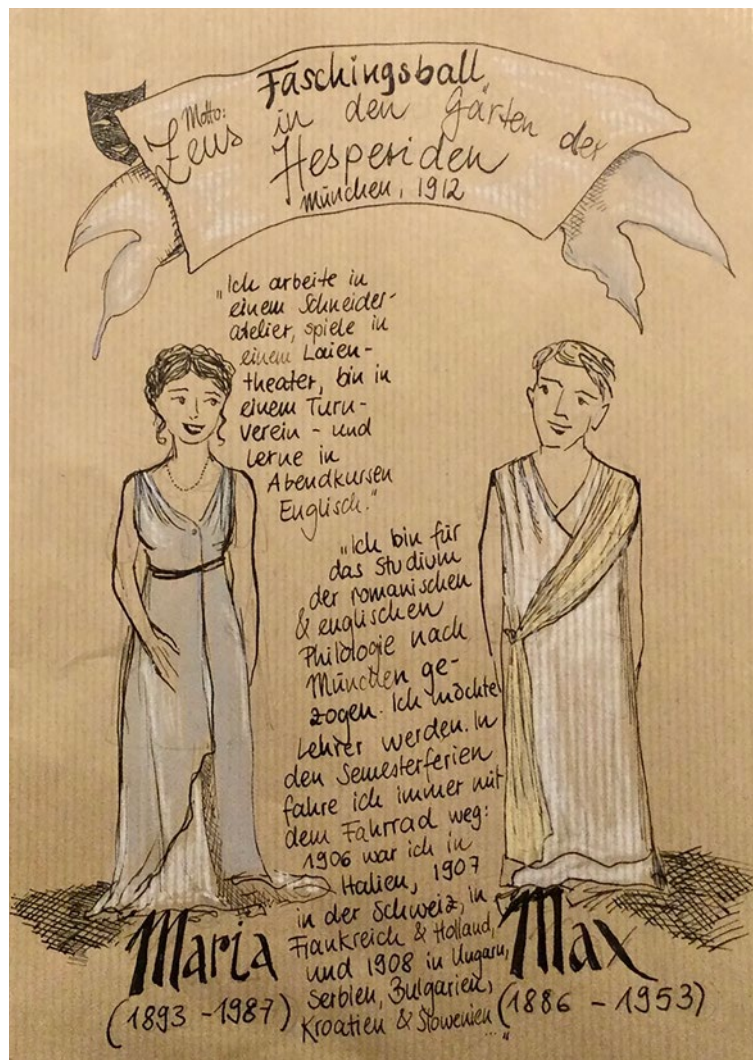 Faschingsball
Motto:
"Zeus in den Gärten der
Hesperiden
München, 1912
"Ich arbeite in
einem Schneider-
atelier, spiele in
einem Laien-
theater, bin in
einem Turn-
verein - und
lerne in
Abendkursen
Englisch."
"Ich bin für
das Studium
der romanischen
& englischen
Philologie nach
München ge-
zogen. Ich möchte
Lehrer werden. In
den Semesterferien
fahre ich immer mit
dem Fahrrad weg:
1906 war ich in
Italien, 1907
in der Schweiz, in
Frankreich & Holland,
und 1908 in Ungarn,
Serbien, Bulgarien,
Kroatien & Slowenien..."
Maria
(1893 - 1987)
Max
(1886 - 1953)